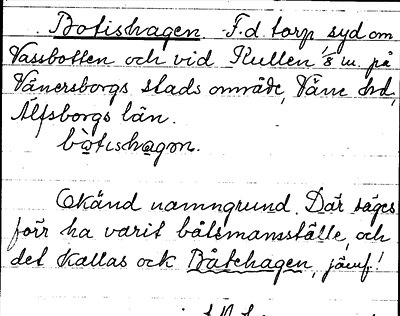 Botishagen. F.d. torp syd om
Vassbotten och vid Kullen's m. på
Vänersborgs stads område, Väne hd,
Älfsborgs län.
bòtɩshagɷn.
Okänd namngrund. Där säges
förr ha varit båtsmansställe, och
det kallas ock Båtshagen, jämf!